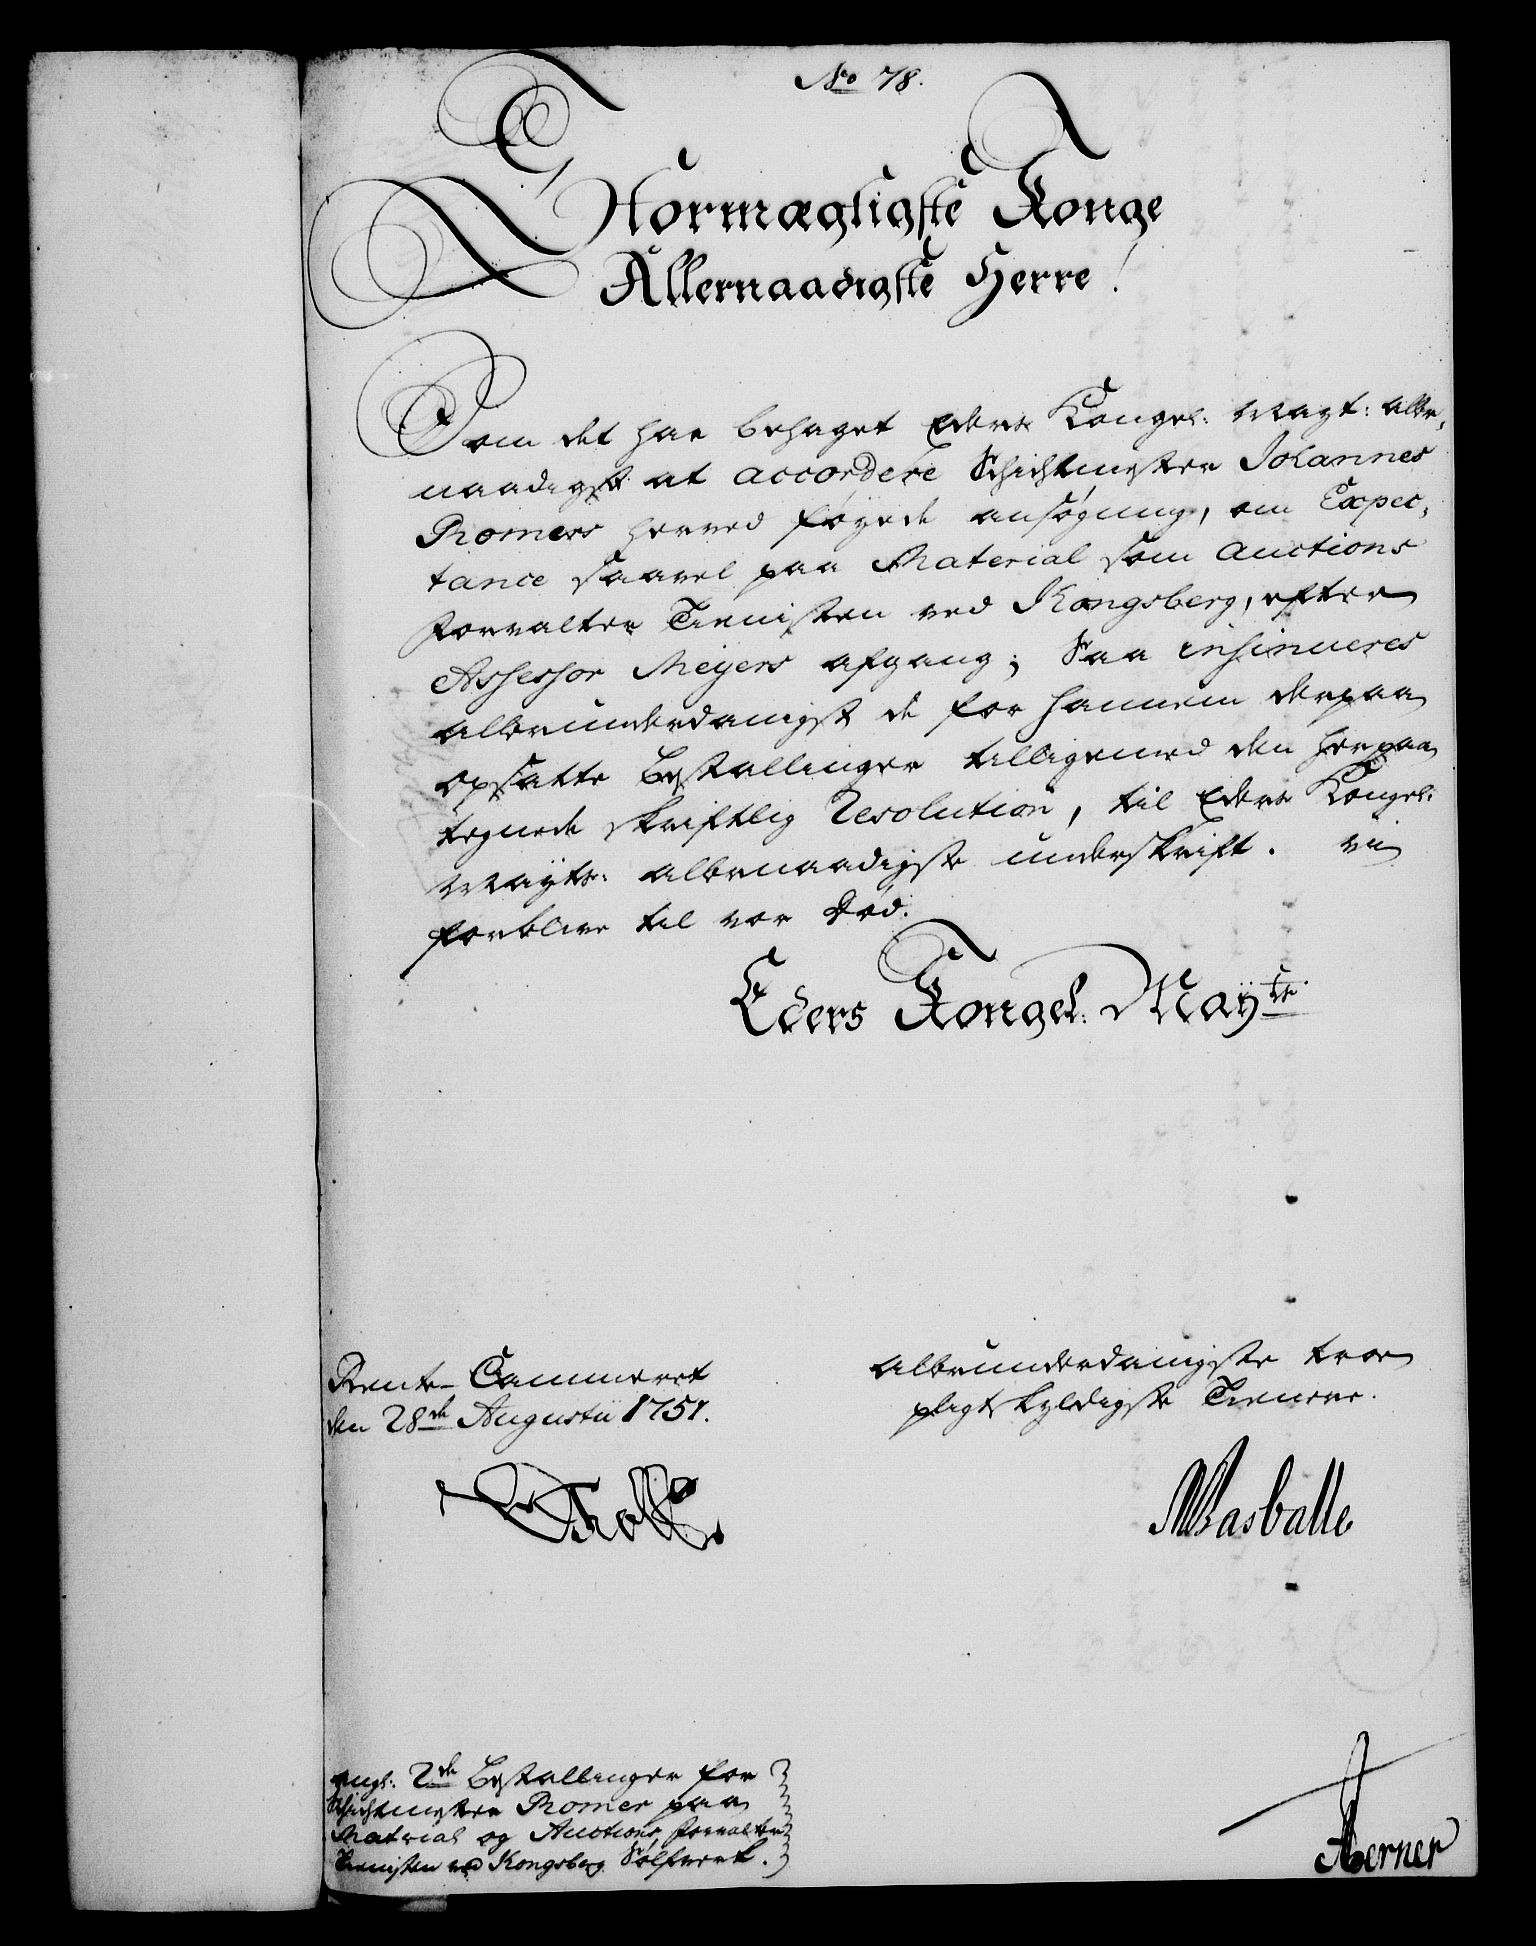 No 78.
Stormægtigste Konge
Allernaadigste Herre!
Som det har behaget Eders Kongel: Mayt: aller,
naadigst at accordere Schichtmester Johannes
Romers herved føyede ansøgning, om Expec,
tance saavel paa Material som Auctions
forvalter Tienisten ved Kongsberg, efter
Assessor Meyers afgang; Saa insinueres
allerunderdanigst de for hannem derpaa
opsatte Bestallinger tilligemed den herpaa
tegnede skriftlig Resolution, til Eders Kongel:
Mayts: allernaadigste underskrift. Vi
forblive til vor Død.
Eders Kongel: Mayts
Rente-Cammeret
den 28de Augustii 1751.
allerunderdanigste troe
pligtskyldigste Tienere.
Holst
Basballe
angl: 2de Bestallinger for
Schichtmester Romer paa
Material og Auctions forvalter
Tienisten ved Kongsberg Sølfverk.
Aerner